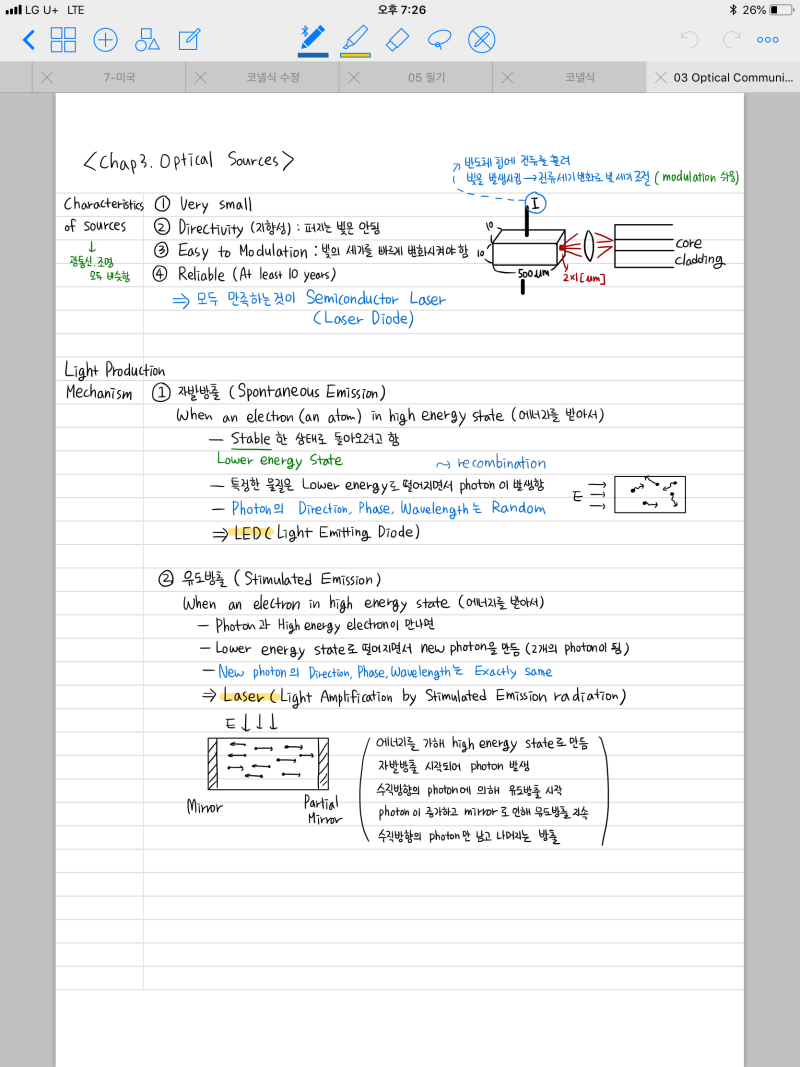 LG U+ LTE 오후 7:26 26%
7-미국 코넬식 수정 05 필기 코넬식 03 Optical Communi...
<Chap3. Optical Sources>
반도체 칩에 전류를 흘려
빛을 발생시킴 → 전류세기 변화로 빛 세기 조절 (modulation 쉬움)
I
Characteristics
of Sources
↓
광통신, 조명
모두 비슷함
① Very small
② Directivity (지향성) : 퍼지는 빛은 안됨
③ Easy to Modulation : 빛의 세기를 빠르게 변화시켜야 함
④ Reliable (At least 10 years)
⇒ 모두 만족하는것이 Semiconductor Laser
(Laser Diode)
10
10
500 μm
2×1[μm]
core
cladding
Light Production
Mechanism
① 자발방출 (Spontaneous Emission)
When an electron (an atom) in high energy state (에너지를 받아서)
— Stable 한 상태로 돌아오려고 함
Lower energy State
↝ recombination
— 특정한 물질은 Lower energy로 떨어지면서 photon이 발생함
— Photon의 Direction, Phase, Wavelength는 Random
⇒ LED (Light Emitting Diode)
E
② 유도방출 (Stimulated Emission)
When an electron in high energy state (에너지를 받아서)
— Photon과 High energy electron이 만나면
— Lower energy state로 떨어지면서 new photon을 만듦 (2개의 photon이 됨)
— New photon의 Direction, Phase, Wavelength는 Exactly same
⇒ Laser (Light Amplification by Stimulated Emission radiation)
E ↓↓↓
Mirror
Partial
Mirror
에너지를 가해 high energy state로 만듦
자발방출 시작되어 photon 발생
수직방향의 photon에 의해 유도방출 시작
photon이 증가하고 mirror로 인해 유도방출 지속
수직방향의 photon만 남고 나머지는 방출